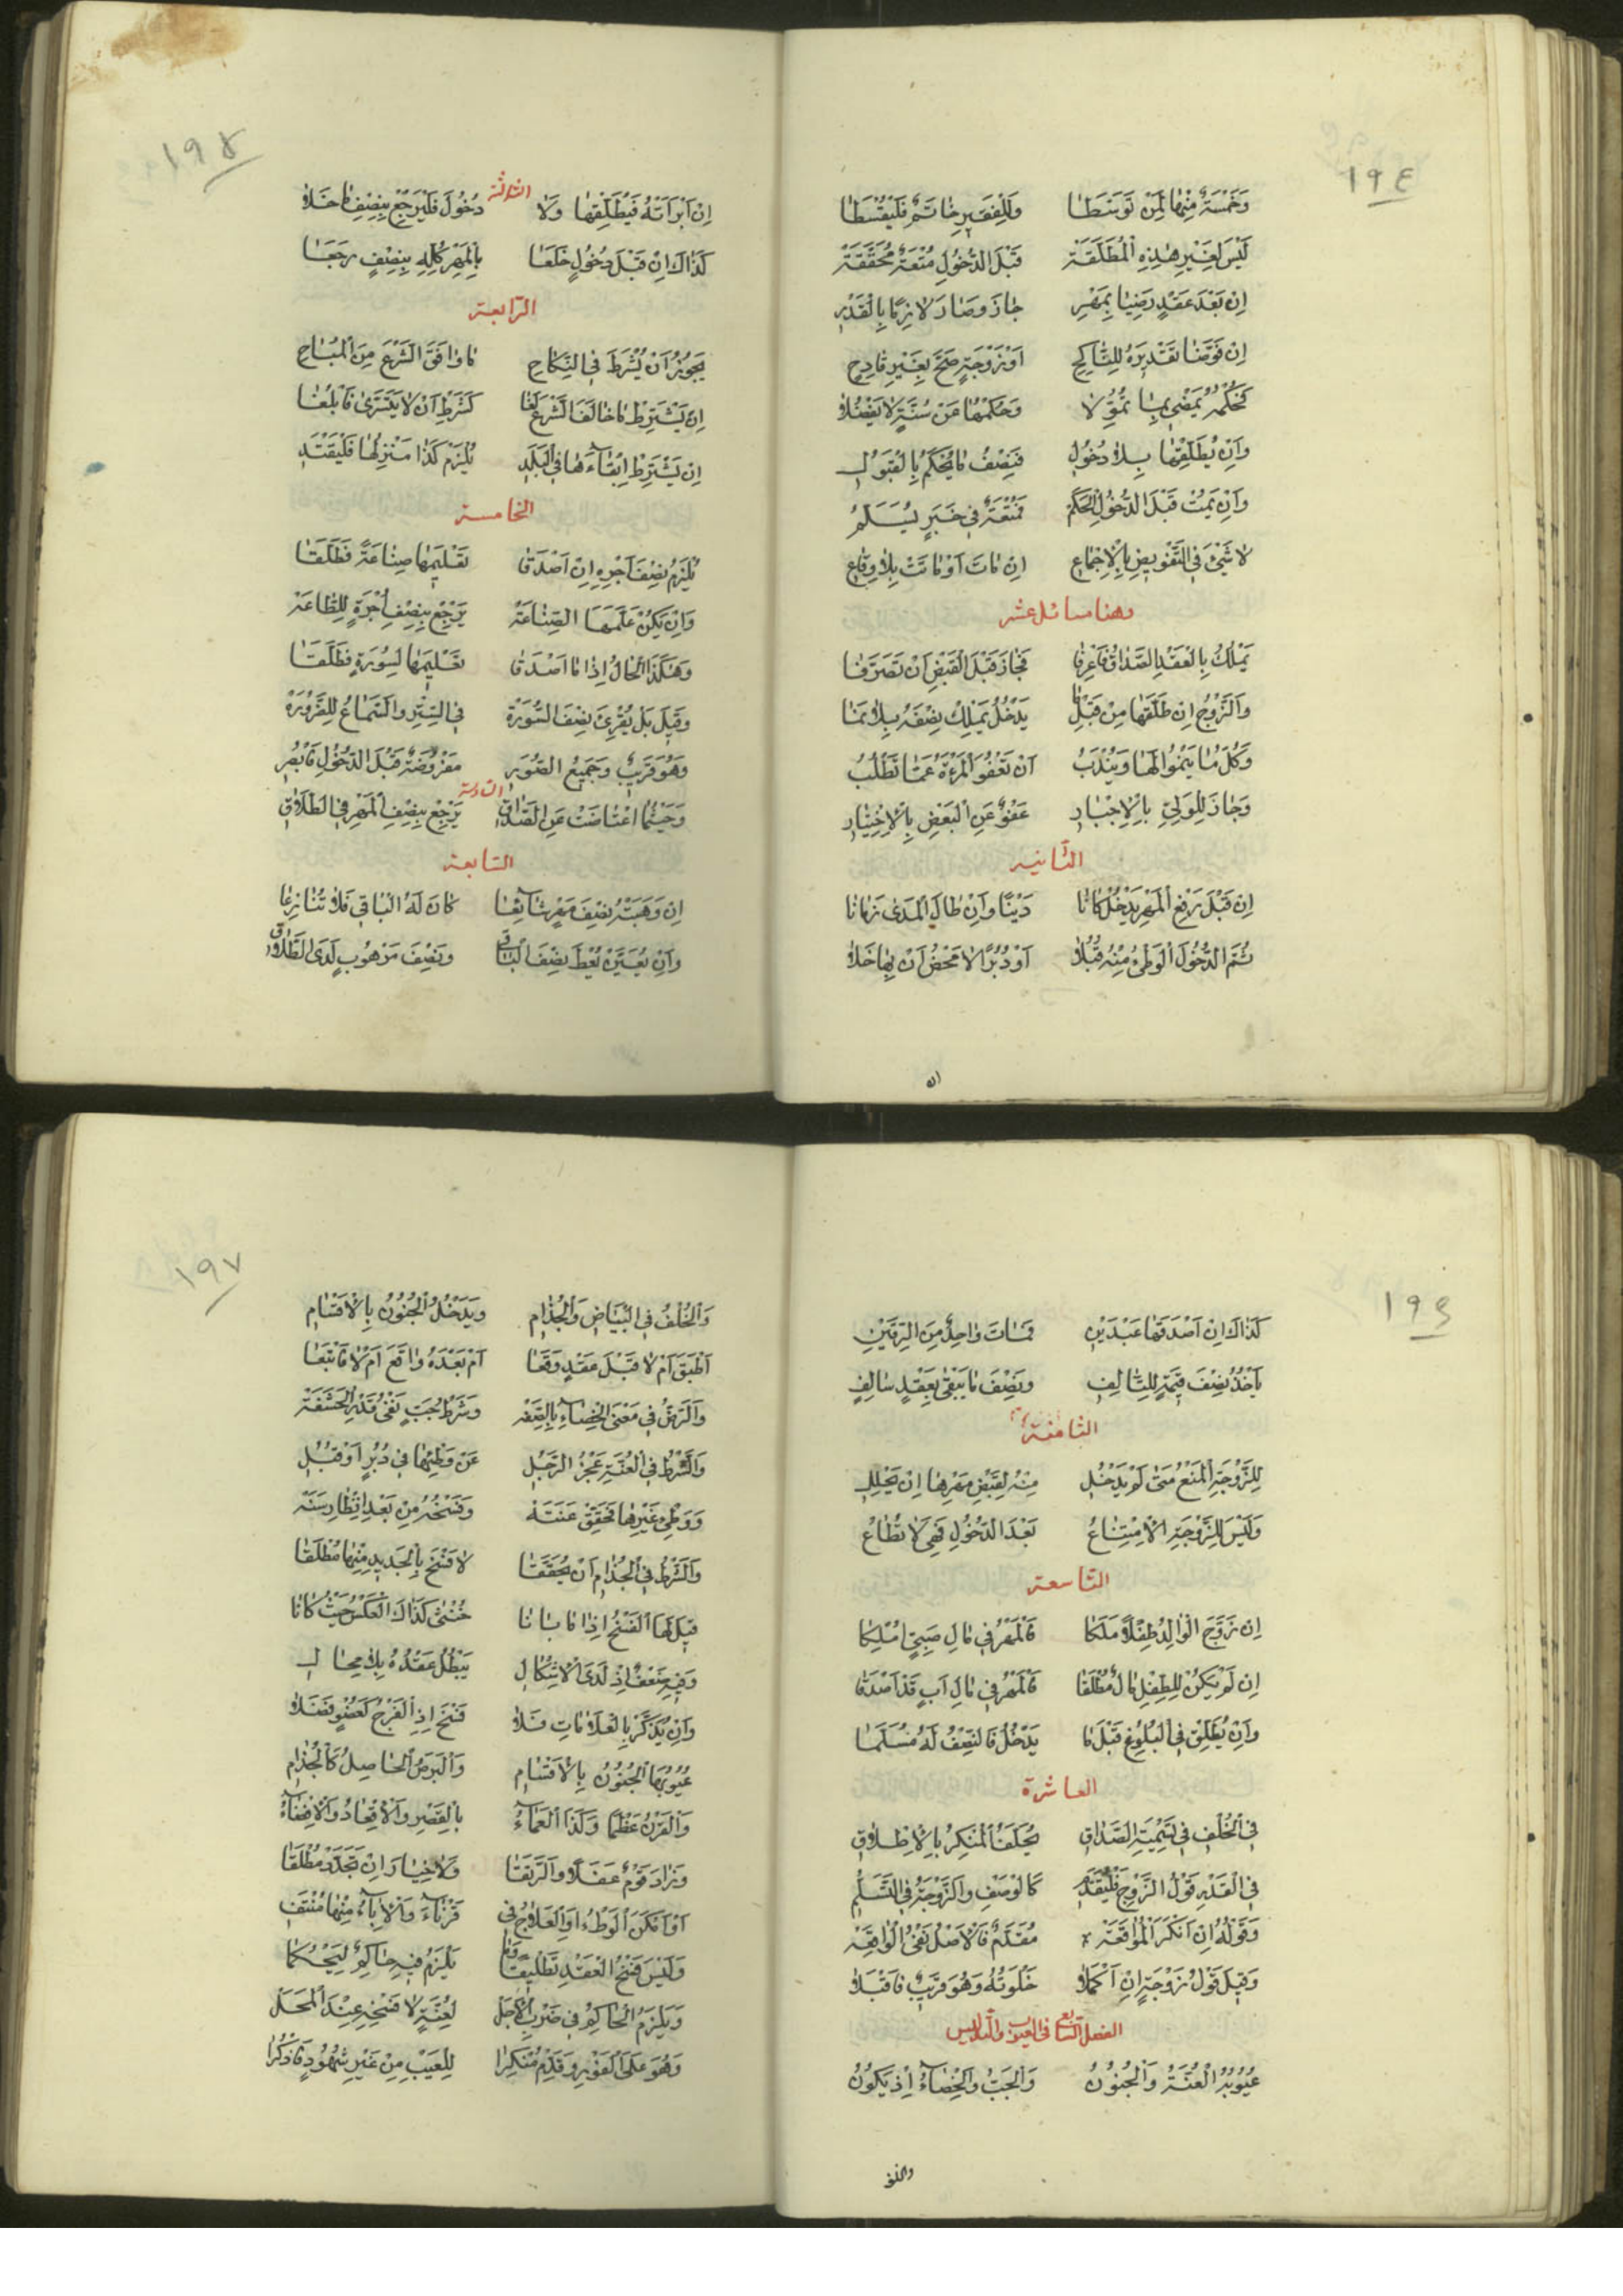 ١٩٤
وَخَمْسَةٌ مِنْهَا لِمَنْ تَوَسَّطَا وَلِلْفَقِيرِ خَاتَمٌ فَلْيُقْسِطَا
لَيْسَ لِغَيْرِ هٰذِهِ الْمُطَلَّقَة قَبْلَ الدُّخُولِ مُتْعَةٌ مُحَقَّقَة
اِنْ بَعْدَ عَقْدٍ رَضِيَا بِمَهْرِ جَازَ وَصَارَ لَازِمًا بِالْقَدْرِ
اِنْ فَوَّضَا تَقْدِيرَهُ لِلنَّاكِحِ اَوْ زَوْجَةٍ صَحَّ بِغَيْرِ قَادِحِ
فَحُكْمُهُ يَمْضِي بِمَا تُمُوِّلَا وَحُكْمُهَا عَنْ سُنَّةٍ لَا يَفْضُلَا
وَاِنْ يُطَلِّقْهَا بِلَا دُخُولِ فَنِصْفُ مَا يُحْكَمُ بِالْقَبُولِ
وَاِنْ يَمُتْ قَبْلَ الدُّخُولِ الْحَكَمُ فَمُتْعَةٌ فِي خَبَرٍ يُسَلَّمُ
لَا شَيْئَ فِي التَّفْوِيضِ بِالْاِجْمَاعِ اِنْ مَاتَ اَوْ مَاتَتْ بِلَا وِقَاعِ
وهنا مسائل عشر
يَمْلِكُ بِالْعَقْدِ الصَّدَاقُ فَاعْرِفَا فَجَازَ قَبْلَ الْقَبْضِ اَنْ تَصَرَّفَا
وَالزَّوْجُ اِنْ طَلَّقَهَا مِنْ قَبْلِ مَا يَدْخُلُ يَمْلِكْ نِصْفَهُ بِلَا نَمَا
وَكُلُّ مَا يَنْمُوا لَهَا وَيُنْدَبُ اَنْ تَعْفُوَ الْمَرْءَةُ عَمَّا تَطْلُبُ
وَجَازَ لِلْوَلِيِّ بِالْاِجْبَارِ عَفْوٌ عَنِ الْبَعْضِ بِالْاِخْتِيَارِ
الثانيه
اِنْ قَبْلَ رَفْعِ الْمَهْرِ يَدْخُلْ كَانَا دَيْنًا وَاِنْ طَالَ الْمَدَى زَمَانَا
ثُمَّ الدُّخُولُ الْوَطْئُ مِنْهُ قُبُلَا اَوْ دُبُرًا لَا مَحْضُ اَنْ بِهَا خَلَا
ان
١٩٥
اِنْ اَبْرَأَتْهُ فَيُطَلِّقْهَا وَلَا الثالثة دُخُولَ فَلْيَرْجِعْ بِنِصْفِ مَا خَلَا
كَذَاكَ اِنْ قَبْلَ دُخُولٍ خَلَعَا بِالْمَهْرِ كُلِّهِ بِنِصْفٍ رَجَعَا
الرابعة
يَجُوزُ اَنْ يُشْرَطَ فِي النِّكَاحِ مَا وَافَقَ الشَّرْعَ مِنَ الْمُبَاحِ
اِنْ يَشْتَرِطْ مَا خَالَفَ الشَّرْعَ لَغَا كَشَرْطِ اَنْ لَا يَتَسَرَّى فَابْلُغَا
اِنْ يَشْتَرِطْ اِبْقَاءَهَا فِي الْبَلَدِ يُلْزَمْ كَذَا مَنْزِلُهَا فَلْيَقْتَدِ
الخامسة
يُلْزَمُ نِصْفَ اَجْرِهِ اِنْ اَصْدَقَا تَعْلِيمَهَا صِنَاعَةً فَطَلَّقَا
وَاِنْ يَكُنْ عَلَّمَهَا الصِّنَاعَة يَرْجِعْ بِنِصْفِ اُجْرَةٍ لِلطَّاعَة
وَهٰكَذَا الْحَالُ اِذَا مَا اَصْدَقَا تَعْلِيمَهَا لِسُورَةٍ فَطَلَّقَا
وَقِيلَ بَلْ يُقْرِئُ نِصْفَ السُّورَة فِي السِّتْرِ وَالسَّمَاعُ لِلضَّرُورَة
وَهُوَ قَرِيبٌ وَجَمِيعُ الصُّوَرِ مَفْرُوضَةٌ قَبْلَ الدُّخُولِ فَابْصُرِ
وَحَيْثُمَا اعْتَاضَتْ عَنِ الصَّدَاقِ السادسة يَرْجِعْ بِنِصْفِ الْمَهْرِ فِي الطَّلَاقِ
السابعة
اِنْ وَهَبَتْهُ نِصْفَ مَهْرٍ شَائِعَا كَانَ لَهُ الْبَاقِي فَلَا تُنَازِعَا
وَاِنْ يُعَيَّنْ يُعْطَ نِصْفَ الْبَاقِ وَنِصْفَ مَوْهُوبٍ لَدَى الطَّلَاقِ
١٩٦
كَذَاكَ اِنْ اَصْدَقَهَا عَبْدَيْنِ فَمَاتَ وَاحِدٌ مِنَ الرِّقَّيْنِ
يَأْخُذُ نِصْفَ قِيمَةٍ لِلتَّالِفِ وَنِصْفَ مَا يَبْقَى بِعَقْدٍ سَالِفِ
الثامنة
لِلزَّوْجَةِ الْمَنْعُ مَتَى لَمْ يَدْخُلِ مِنْهُ لِقَبْضِ مَهْرِهَا اِنْ يَحْلُلِ
وَلَيْسَ لِلزَّوْجَةِ الْاِمْتِنَاعُ بَعْدَ الدُّخُولِ فَهِيَ لَا تُطَاعُ
التاسعة
اِنْ زَوَّجَ الْوَالِدُ طِفْلًا مَلَكَا فَالْمَهْرُ فِي مَالِ صَبِيٍّ مُلِكَا
اِنْ لَمْ يَكُنْ لِلطِّفْلِ مَالٌ مُطْلَقَا فَالْمَهْرُ فِي مَالِ اَبٍ قَدْ اَصْدَقَا
وَاِنْ يُطَلِّقْ فِي الْبُلُوغِ قَبْلَ مَا يَدْخُلُ فَالنِّصْفُ لَهُ مُسَلَّمَا
العاشرة
فِي الْخُلْفِ فِي تَسْمِيَةِ الصَّدَاقِ يُحَلَّفُ الْمُنْكِرُ بِالْاِطْلَاقِ
فِي الْقَدْرِ قَوْلُ الزَّوْجِ فَلْيُقَدَّمِ كَالْوَصْفِ وَالزَّوْجَةُ فِي التَّسَلُّمِ
وَقَوْلُهُ اِنْ اَنْكَرَ الْمُوَاقَعَة مُقَدَّمٌ فَالْاَصْلُ نَفْيُ الْوَاقِعَة
وَقِيلَ قَوْلُ زَوْجَةٍ اِنْ اَكْمَلَا خَلْوَتُهُ وَهُوَ قَرِيبٌ فَاقْبَلَا
الفصل السابع فى العيوب والتدليس
عُيُوبُهُ الْعُنَّةُ وَالْجُنُونُ وَالْجَبُّ وَالْخِصَاءُ اِذْ يَكُونُ
والخلف
١٩٧
وَالْخُلْفُ فِي الْبَيَاضِ وَالْجُذَامِ وَيَدْخُلُ الْجُنُونُ بِالْاَقْسَامِ
اَطْبَقَ اَمْ لَا قَبْلَ عَقْدٍ وَقَعَا اَمْ بَعْدَهُ وَاقَعَ اَمْ لَا فَاتْبَعَا
وَالرَّضُّ فِي مَعْنَى الْخِصَاءِ بِالصِّفَة وَشَرْطُ جَبٍّ نَفْيُ قَدْرِ الْحَشَفَة
وَالشَّرْطُ فِي الْعُنَّةِ عَجْزُ الرَّجُلِ عَنْ وَطْئِهَا فِي دُبُرٍ اَوْ قُبُلِ
وَوَطْئِ غَيْرِهَا تَحَقَّقْ عَنَتَهْ وَفَسْخُهُ مِنْ بَعْدِ اِنْظَارِ سَنَة
وَالشَّرْطُ فِي الْجُذَامِ اَنْ يُحَقَّقَا لَا فَسْخَ بِالْجَدِيدِ مِنْهَا مُطْلَقَا
قِيلَ لَهَا الْفَسْخُ اِذَا مَا بَانَا خُنْثَى كَذَاكَ الْعَكْسُ حَيْثُ كَانَا
وَفِيهِ ضَعْفٌ اِذْ لَدَى الْاِشْكَالِ يَبْطُلُ عَقْدُهُ بِلَا مِحَالِ
وَاِنْ يُذَكَّرْ بِالْعَلَامَاتِ فَلَا فَسْخَ اِذِ الْفَرْجُ كَعُضْوٍ فَضَلَا
عُيُوبُهَا الْجُنُونُ بِالْاَقْسَامِ وَالْبَرَصُ الْحَاصِلُ كَالْجُذَامِ
وَالْقَرْنُ عَظْمًا وَكَذَا الْعَمَاءُ بِالْقَصْرِ وَالْاِقْعَادُ وَالْاِفْضَاءُ
وَزَادَ قَوْمٌ عَفَلًا وَالرَّتَقَا وَلَا خِيَارَ اِنْ تَجَدَّدَ مُطْلَقَا
اَوْ اَمْكَنَ الْوَطْءُ اَوِ الْعِلَاجُ فِي قَرْنَاءَ وَالْاِبَاءُ مِنْهَا مُنْتَفِ
وَلَيْسَ فَسْخُ الْعَقْدِ تَطْلِيقًا وَمَا يَلْزَمُ فِيهِ حَاكِمٌ لِيَحْكُمَا
وَيَلْزَمُ الْحَاكِمُ فِي ضَرْبِ الْاَجَلْ لِعُنَّةٍ لَا فَسْخِهِ عِنْدَ الْمَحَلْ
وَهُوَ عَلَى الْفَوْرِ وَقَدِّمْ مُنْكِرَا لِلْعَيْبِ مِنْ غَيْرِ شُهُودٍ فَاذْكُرَا